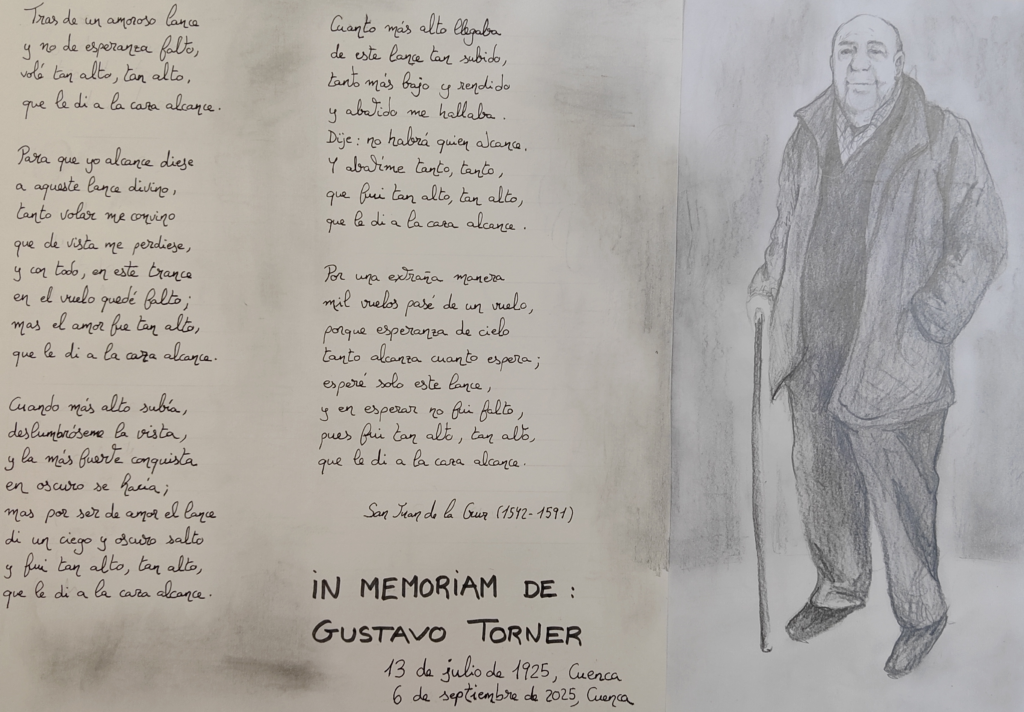 Tras de un amoroso lance
y no de esperanza falto,
volé tan alto, tan alto,
que le di a la caza alcance.
Para que yo alcance diese
a aqueste lance divino,
tanto volar me convino
que de vista me perdiese,
y con todo, en este trance
en el vuelo quedé falto;
mas el amor fue tan alto,
que le di a la caza alcance.
Cuando más alto subía,
deslumbróseme la vista,
y la más fuerte conquista
en oscuro se hacía;
mas por ser de amor el lance
di un ciego y oscuro salto
y fui tan alto, tan alto,
que le di a la caza alcance.
Cuanto más alto llegaba
de este lance tan subido,
tanto más bajo y rendido
y abatido me hallaba.
Dije: no habrá quien alcance.
Y abatíme tanto, tanto,
que fui tan alto, tan alto,
que le di a la caza alcance.
Por una extraña manera
mil vuelos pasé de un vuelo,
porque esperanza de cielo
tanto alcanza cuanto espera;
esperé solo este lance,
y en esperar no fui falto,
pues fui tan alto, tan alto,
que le di a la caza alcance.
San Juan de la Cruz (1542-1591)
IN MEMORIAM DE:
GUSTAVO TORNER
13 de julio de 1925, Cuenca
6 de septiembre de 2025, Cuenca